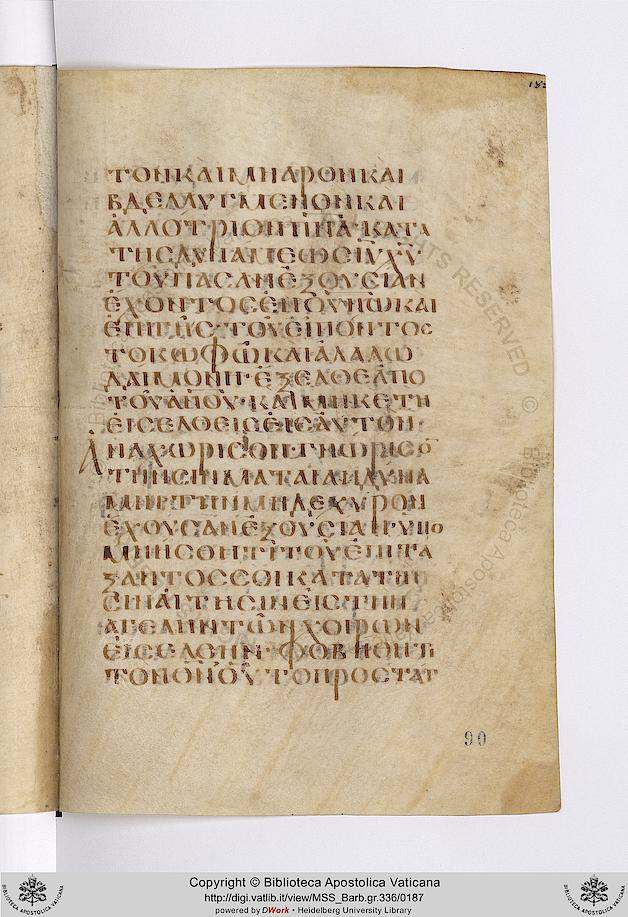 ΤΟΝ ΚΑΙ ΜΗΑΡΟΝ ΚΑΙ
ΒΔΕΛΥΓΜΕΝΟΝ ΚΑΙ
ΑΛΛΟΤΡΙΟΝ ΠΝΑ· ΚΑΤΑ
ΤΗΣ ΔΥΝΑΜΕΩΣ ΙΥ ΧΥ
ΤΟΥ ΠΑΣΑΝ ΕΞΟΥΣΙΑΝ
ΕΧΟΝΤΟΣ ΕΝ ΟΥΝΩ ΚΑΙ
ΕΠΙ ΓΗΣ· ΤΟΥ ΕΙΠΟΝΤΟΣ
ΤΟ ΚΩΦΩ ΚΑΙ ΑΛΑΛΩ
ΔΑΙΜΟΝΙΙ· ΕΞΕΛΘΕ ΑΠΟ
ΤΟΥ ΑΝΟΥ· ΚΑΙ ΜΗΚΕΤΗ
ΕΙΣΕΛΘΕΙΣ ΕΙΣ ΑΥΤΟΝ·
ΑΝΑΧΩΡΙΣΟΝ· ΓΝΩΡΙΣΟ
ΤΗΝ ΣΗΝ ΜΑΤΑΙΑΝ ΔΥΝΑ
ΜΗΝ ΤΗΝ ΜΗΔΕ ΧΥΡΟΝ
ΕΧΟΥΣΑΝ ΕΞΟΥΣΙΑΝ· ΥΠΟ
ΜΝΗΣΘΗΤΙ ΤΟΥ ΕΠΙΤΑ
ΞΑΝΤΟΣ ΣΟΙ ΚΑΤΑ ΤΗΝ
ΣΗΝ ΑΙΤΗΣΙΝ ΕΙΣ ΤΗΝ
ΑΓΕΛΗΝ ΤΩΝ ΧΟΙΡΩΝ
ΕΙΣΕΛΘΗΝ· ΦΟΒΗΘΗΤΙ
ΤΟΝ ΘΝ ΟΥ ΤΟ ΠΡΟΣΤΑΓ
90
Copyright © Biblioteca Apostolica Vaticana
http://digi.vatlib.it/view/MSS_Barb.gr.336/0187
powered by DWork • Heidelberg University Library